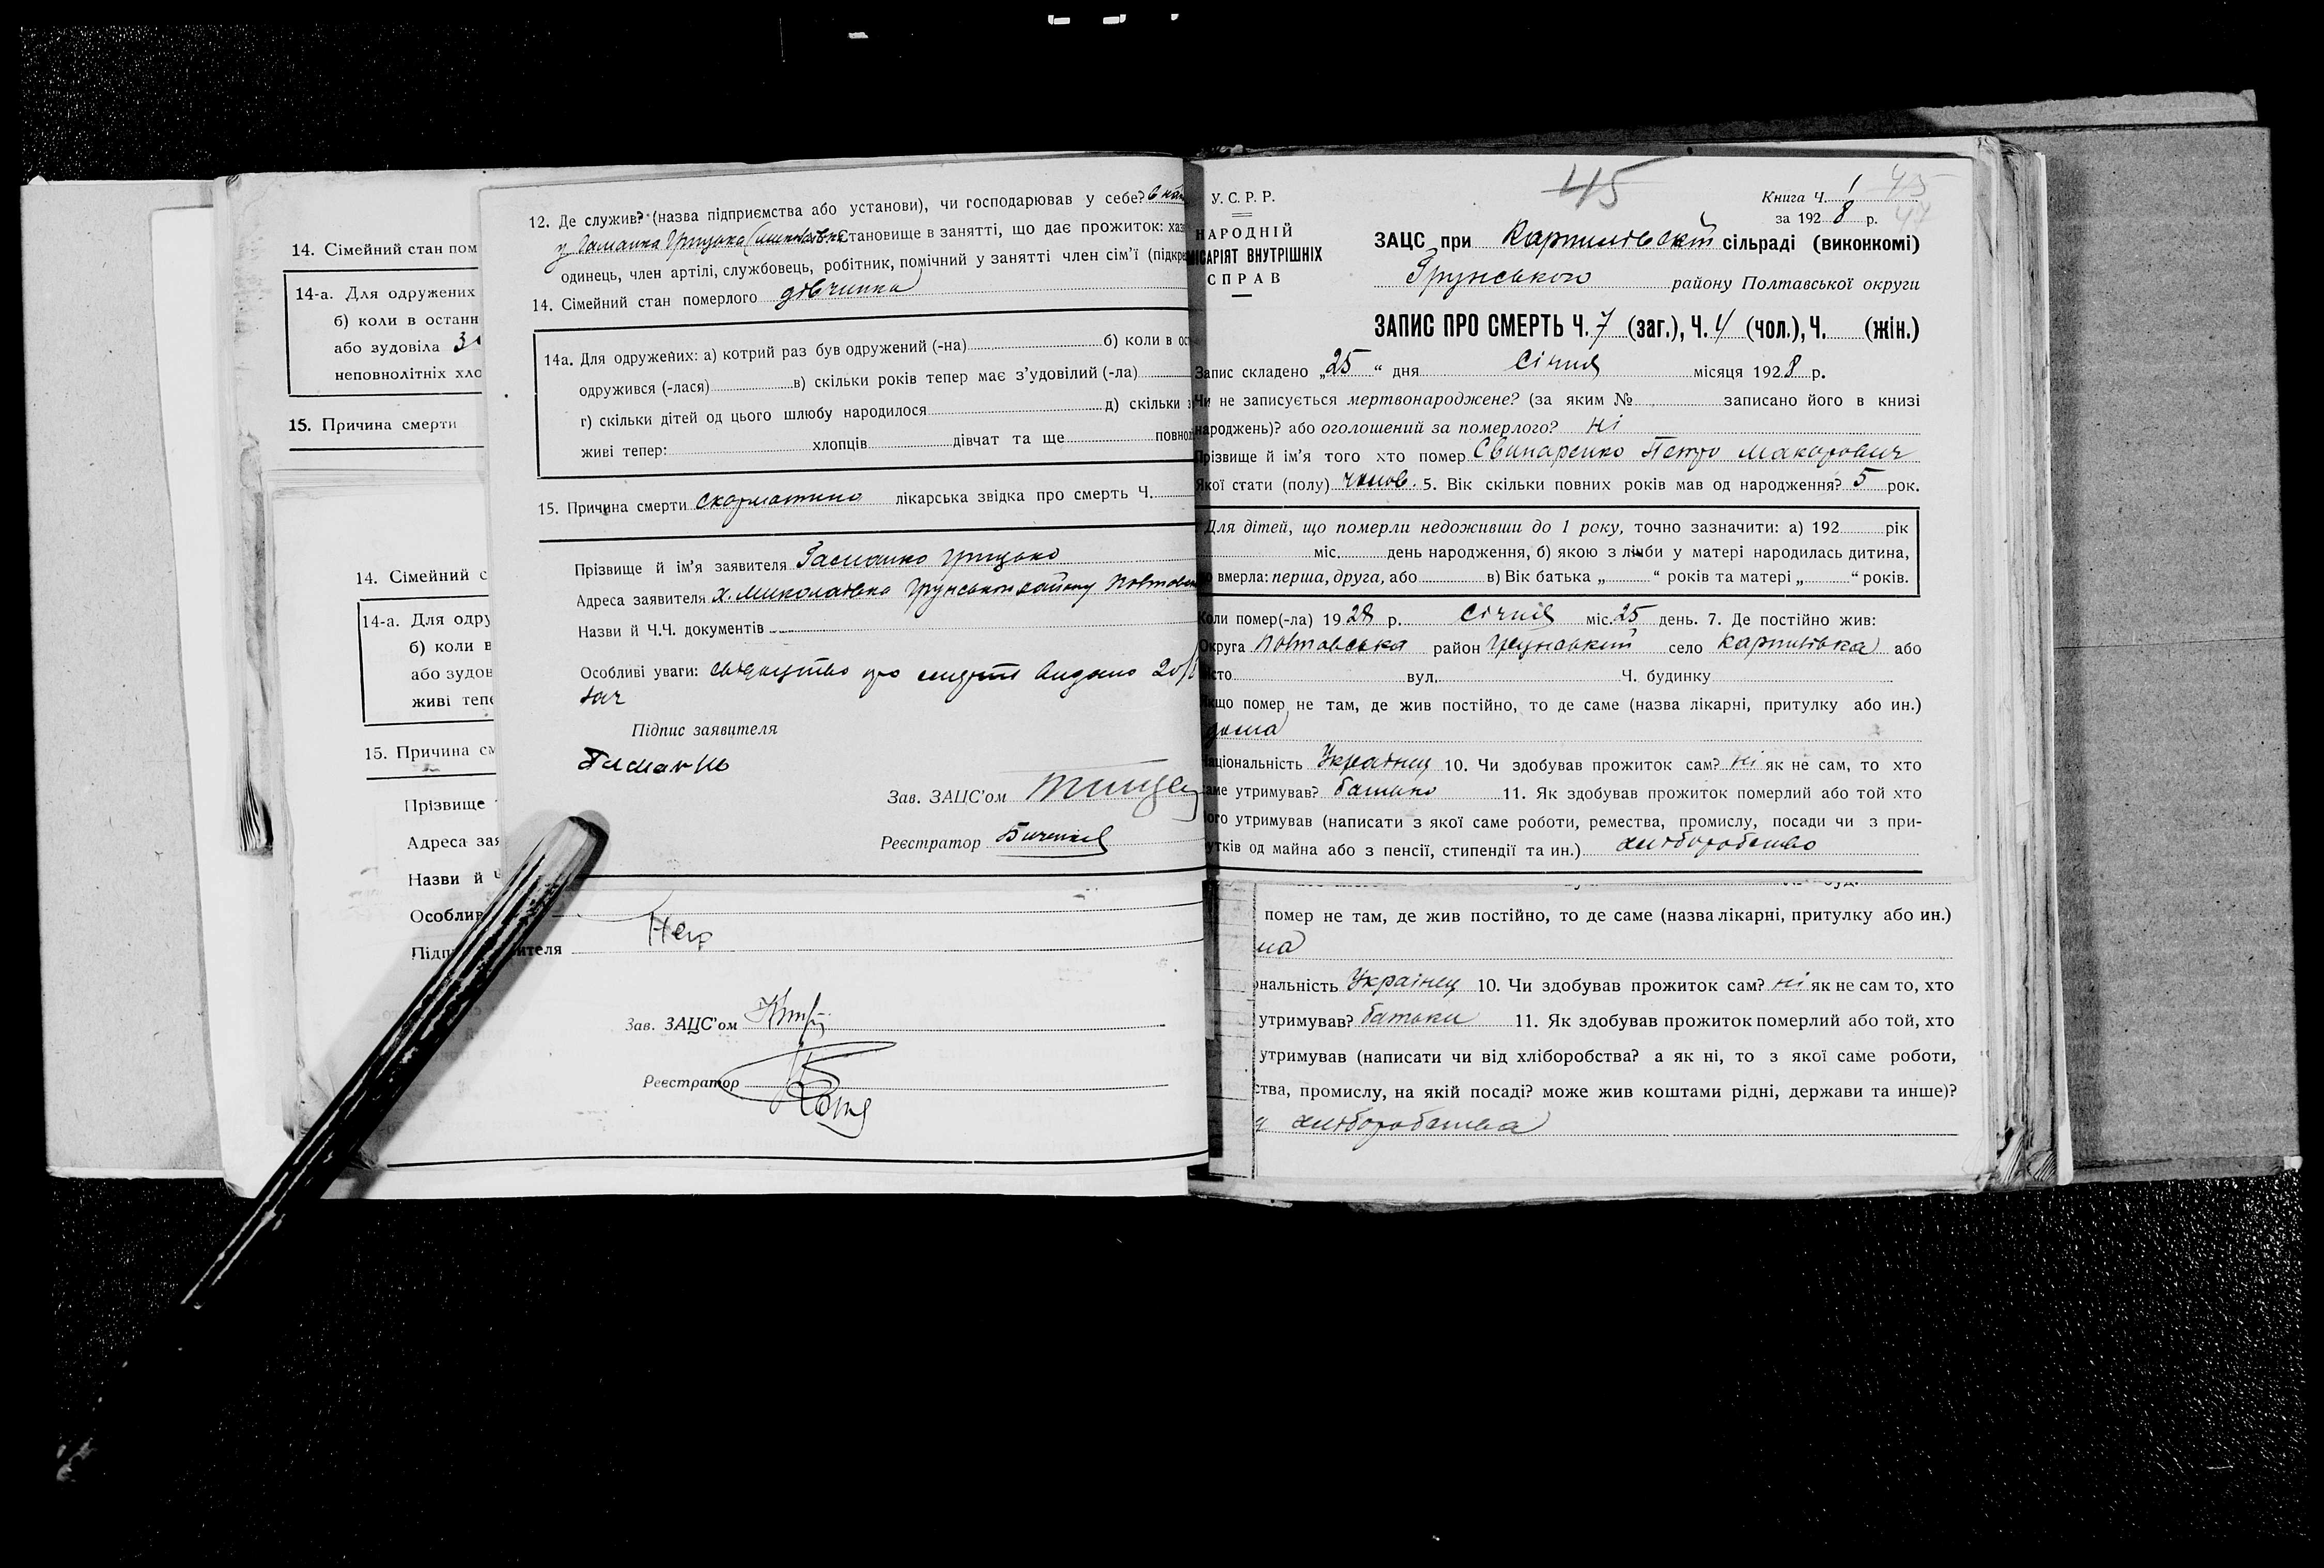 14. Сімейний стан пом
14-а. Для одружених
б) коли в останн
або зудовіла
неповнолітніх хло
15. Причина смерти
14. Сімейний с
14-а. Для одру
б) коли в
або зудов
живі тепе
15. Причина см
Прізвище
Адреса зая
Назви й Ч
Особлив
Підп ителя
12. Де служив? (назва підприємства або установи), чи господарював у себе?
у Гасманка Грицька становище в занятті, що дає прожиток: хаз
одинець, член артілі, службовець, робітник, помічний у занятті член сім’ї (підкре
14. Сімейний стан померлого дівчинка
14а. Для одружених: а) котрий раз був одружений (-на) б) коли в ос
одружився (-лася) в) скільки років тепер має з’удовілий (-ла)
г) скільки дітей од цього шлюбу народилося д) скільки з
живі тепер: хлопців дівчат та ще повнол
15. Причина смерти скарлатина лікарська звідка про смерть Ч.
Прізвище й ім’я заявителя Гасманко Грицько
Адреса заявителя х. Миколаївка Грунського району Полтавс
Назви й Ч.Ч. документів
Особливі уваги: свідоцтво про смерть видано
Підпис заявителя
Зав. ЗАЦС’ом
Реєстратор
Зав. ЗАЦС’ом
Реєстратор
45
У. С. Р. Р.
НАРОДНІЙ
МІСАРІЯТ ВНУТРІШНІХ
СПРАВ
Книга Ч. 1 45
за 1928 р. 47
ЗАЦС при Карпилівскій сільраді (виконкомі)
Грунського району Полтавської округи
ЗАПИС ПРО СМЕРТЬ Ч. 7 (заг.), Ч. 4 (чол.), Ч. (жін.)
Запис складено „25“ дня Січня місяця 1928 р.
Чи не записується мертвонароджене? (за яким № записано його в книзі
народжень)? або оголошений за померлого? Ні
Прізвище й ім’я того хто помер Свинаренко Петро Макарович
Якої стати (полу) чолов. 5. Вік скільки повних років мав од народження? 5 рок.
Для дітей, що померли недоживши до 1 року, точно зазначити: а) 192 рік
міс. день народження, б) якою з лічби у матері народилась дитина,
о вмерла: перша, друга, або в) Вік батька „ “ років та матері „ “ років.
Коли помер(-ла) 1928 р. Січня міс. 25 день. 7. Де постійно жив:
Округа Полтавська район Грунський село Карпилівка або
місто вул. Ч. будинку
Якщо помер не там, де жив постійно, то де саме (назва лікарні, притулку або ин.)
дома
Національність Українец 10. Чи здобував прожиток сам? ні як не сам, то хто
саме утримував? батько 11. Як здобував прожиток померлий або той хто
його утримував (написати з якої саме роботи, ремества, промислу, посади чи з при-
утків од майна або з пенсії, стипендії та ин.) хліборобство
помер не там, де жив постійно, то де саме (назва лікарні, притулку або ин.)
ма
ональність Українец 10. Чи здобував прожиток сам? ні як не сам то, хто
утримував? батьки 11. Як здобував прожиток померлий або той, хто
утримував (написати чи від хліборобства? а як ні, то з якої саме роботи,
ства, промислу, на якій посаді? може жив коштами рідні, держави та инше)?
хліборобства